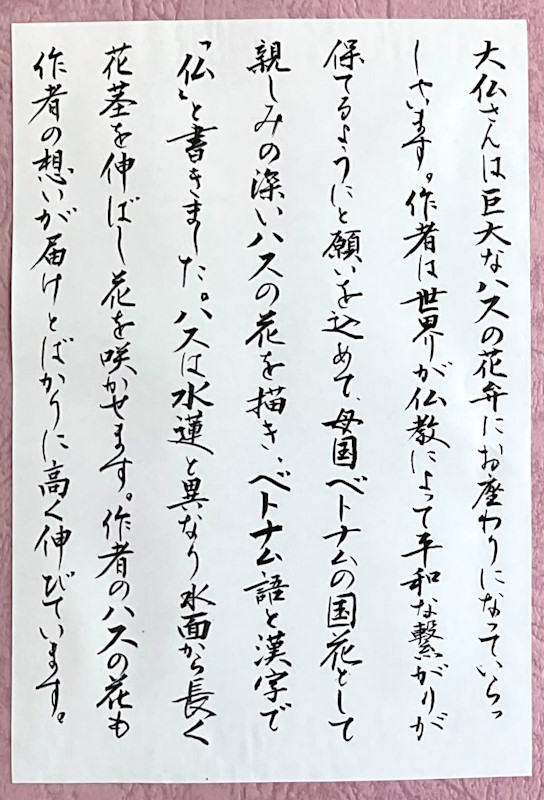 大仏さんは巨大なハスの花弁にお座わりになっていらっ
しゃいます。作者は世界が仏教によって平和な繋がりが
保てるようにと願いを込めて、母国ベトナムの国花として
親しみの深いハスの花を描き、ベトナム語と漢字で
「仏」と書きました。ハスは水蓮と異なり水面から長く
花茎を伸ばし花を咲かせます。作者のハスの花も
作者の想いが届けとばかりに高く伸びています。